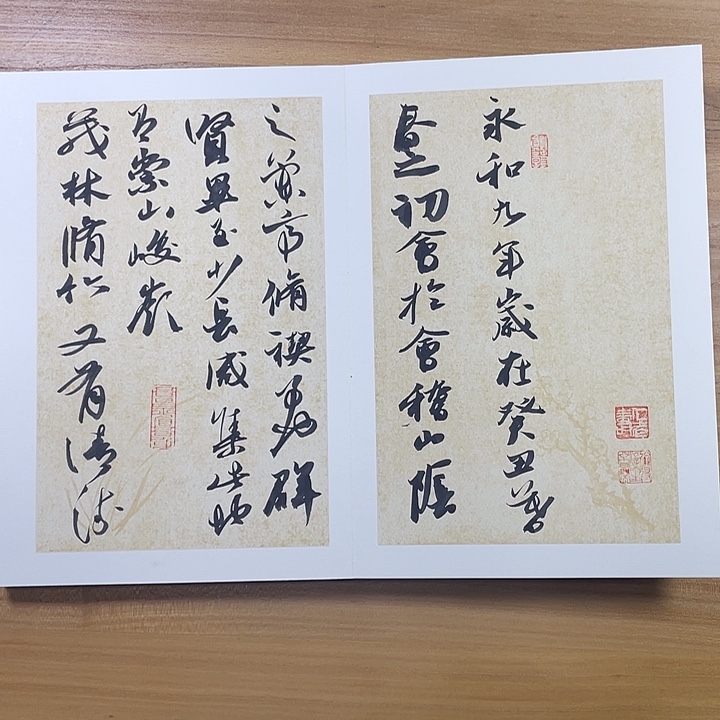 永和九年歲在癸丑暮
春之初會於會稽山陰
之蘭亭脩禊事也群
賢畢至少長咸集此地
有崇山峻嶺
茂林脩竹又有清流